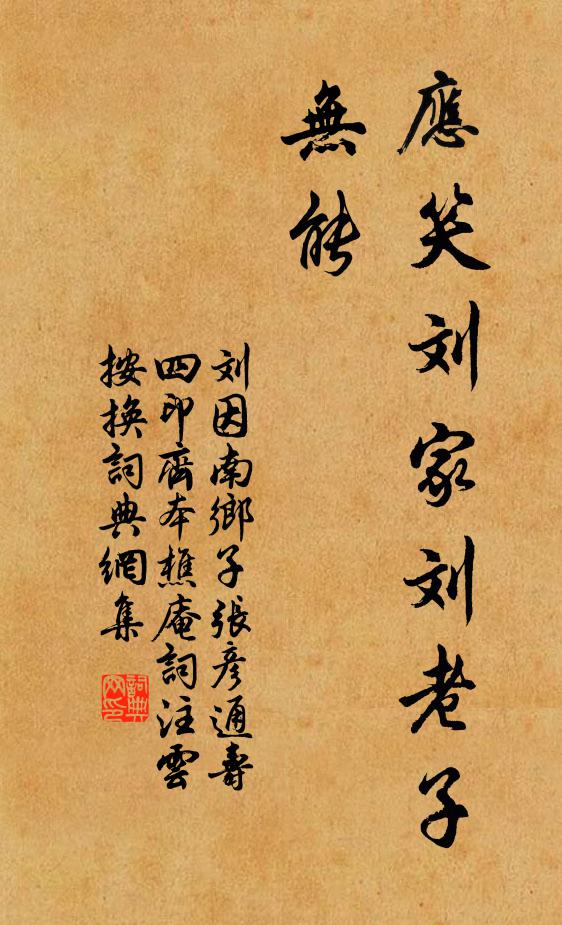 應笑刘家刘老子
無能
刘因南鄉子張彦通壽
四印齋本樵庵詞注雲
按換詞典網集
詞典網印